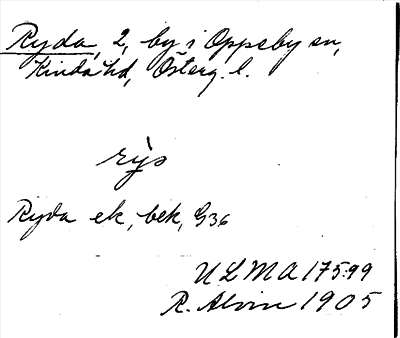 Ryda, 2, by i Oppeby sn,
Kinda hd, Österg. l.
rys
Ryda ek, bek, G36
ULMA 175:99
R. Alvin 1905